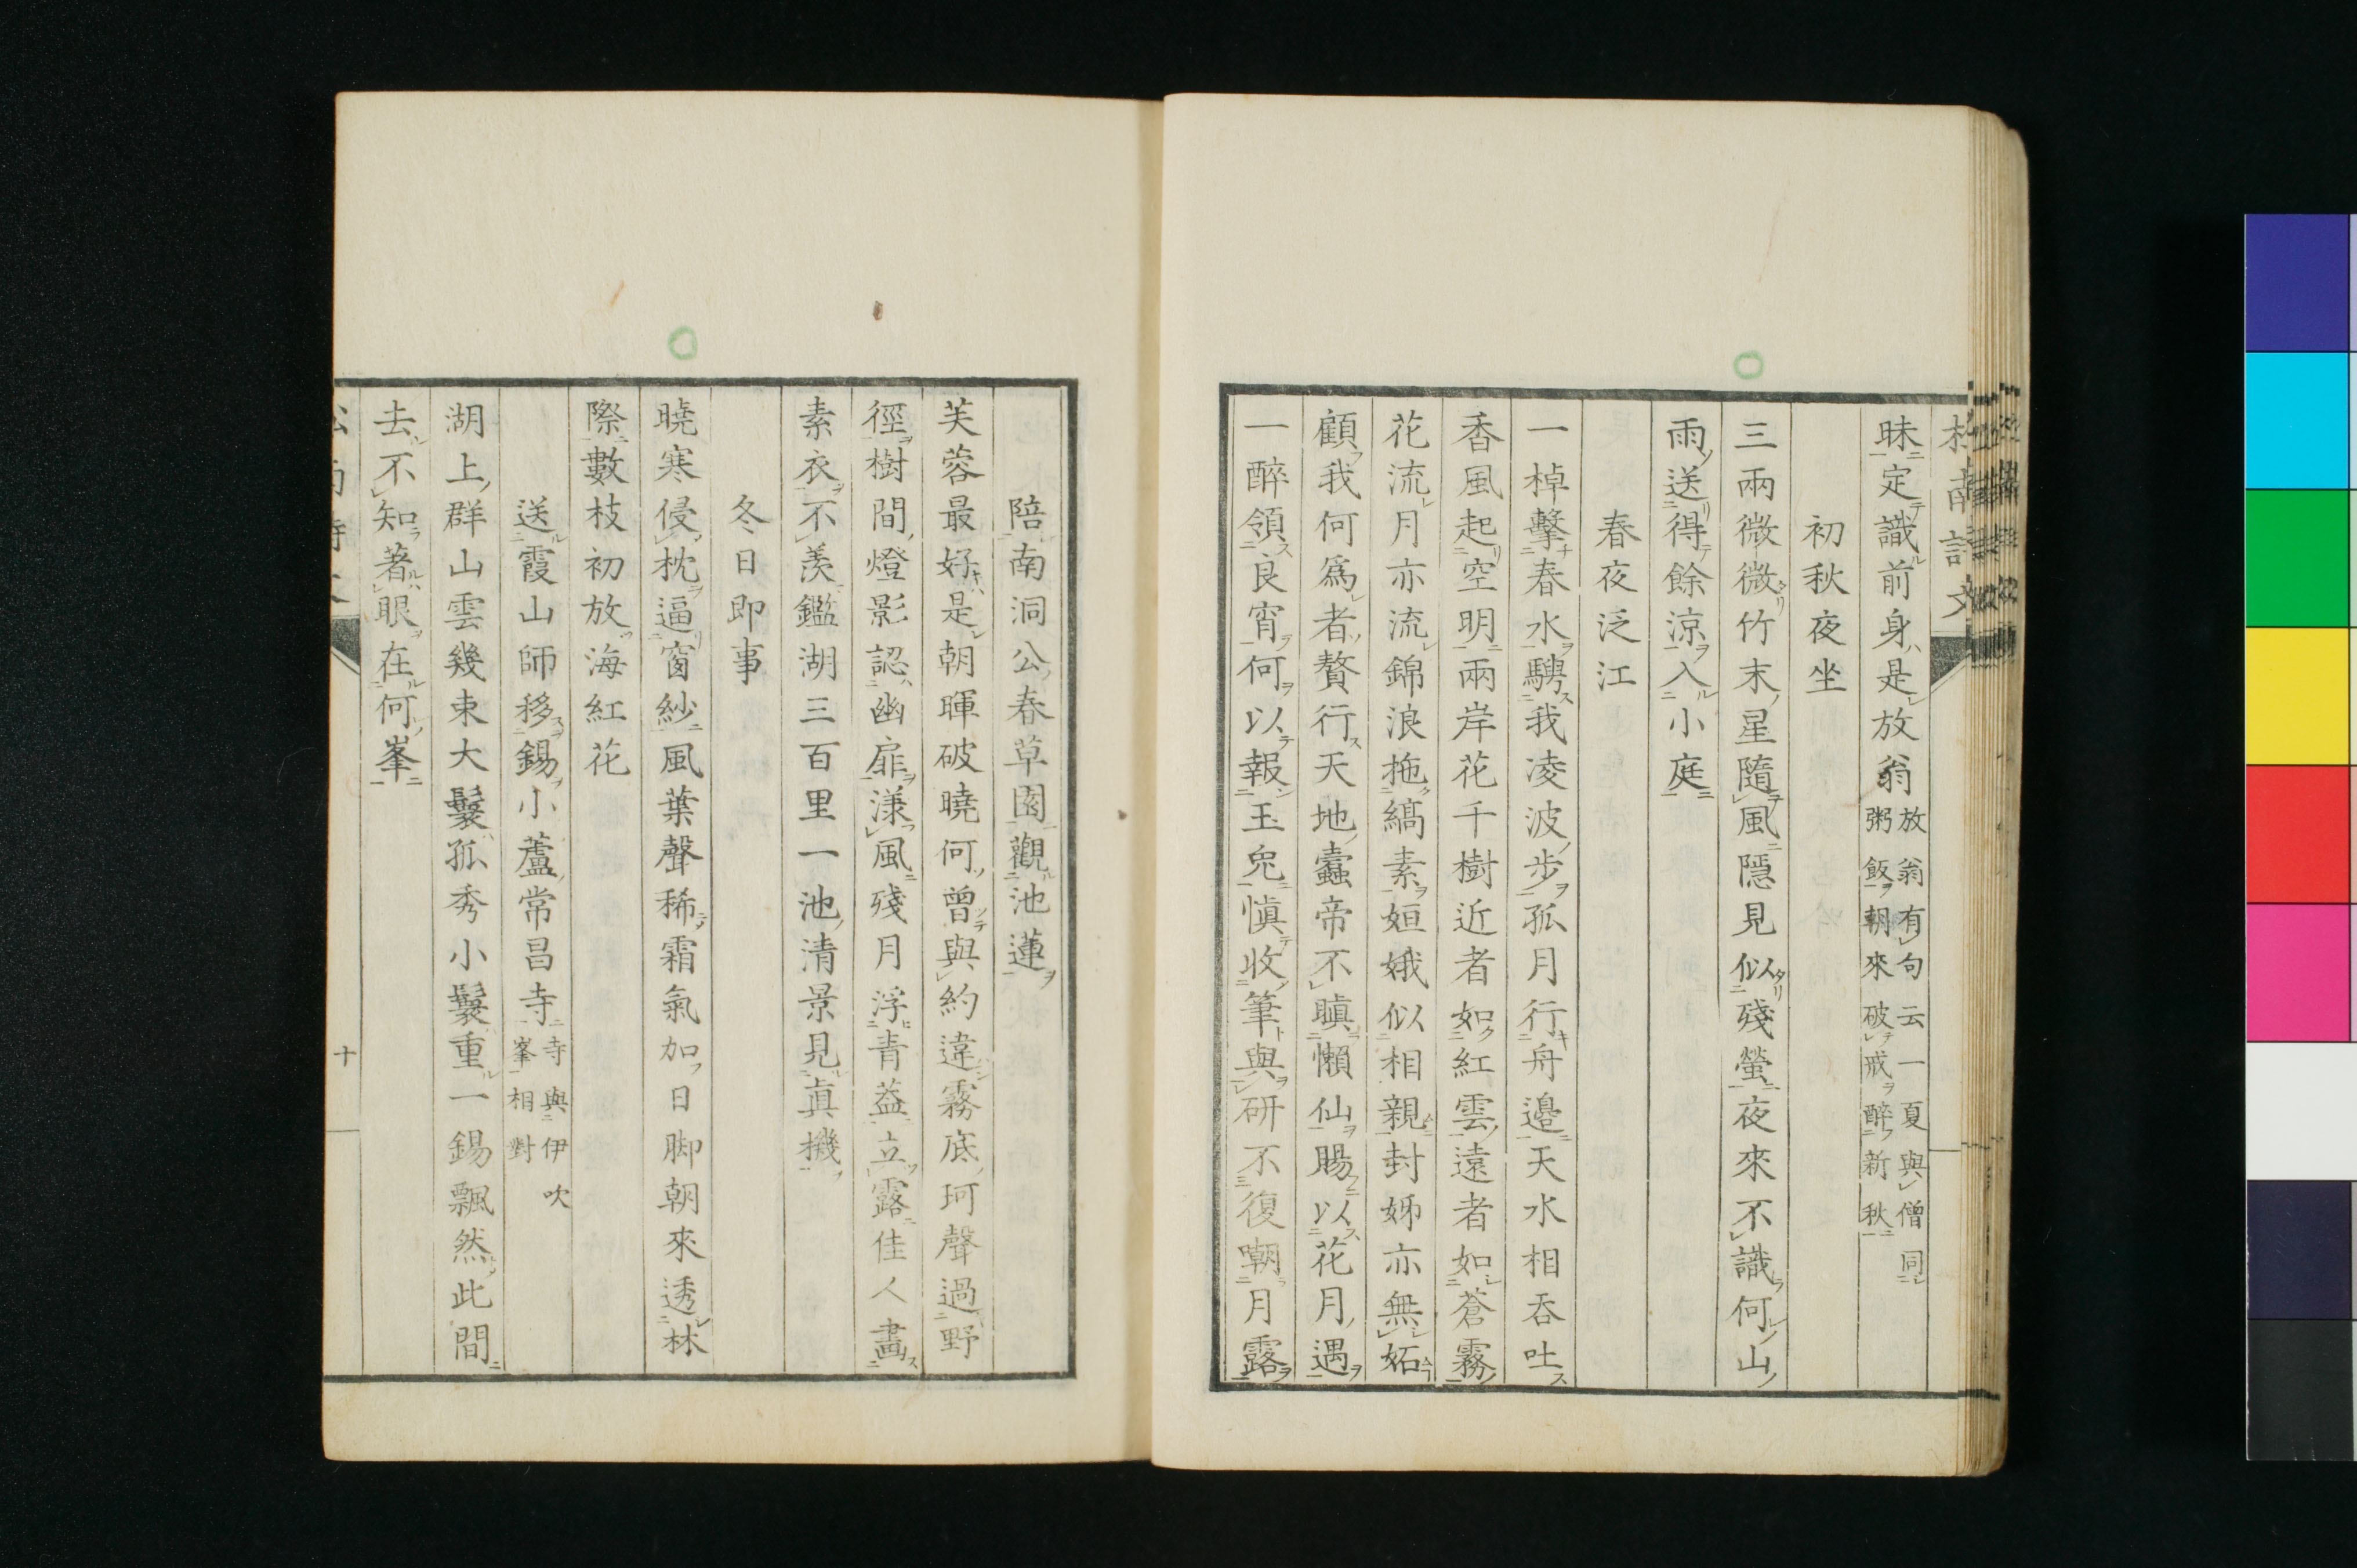 昧定識前身是放翁放翁有句云一夏與僧同粥飯朝來破戒醉新秋
初秋夜坐
三兩微微竹末星隨風隱見似殘螢夜來不識何山
雨送得餘涼入小庭
春夜泛江
一棹擊春水騁我凌波步孤月行舟邊天水相吞吐
香風起空明兩岸花千樹近者如紅雲遠者如蒼霧
花流月亦流錦浪拖縞素姮娥似相親封姊亦無妬
顧我何爲者贅行天地蠹帝不瞋懶仙賜以花月遇
一醉領良宵何以報玉兔愼收筆與硏不復嘲月露
陪南洞公春草園觀池蓮
芙蓉最好是朝暉破曉何曾與約違霧底珂聲過野
徑樹間燈影認幽扉漾風殘月浮靑蓋立露佳人畫
素衣不羨鑑湖三百里一池淸景見眞機
冬日即事
曉寒侵枕逼窗紗風葉聲稀霜氣加日脚朝來透林
際數枝初放海紅花
送霞山師移錫小蘆常昌寺寺與伊吹峯相對
湖上群山雲幾束大鬟孤秀小鬟重一錫飄然此間
去不知著眼在何峯
十